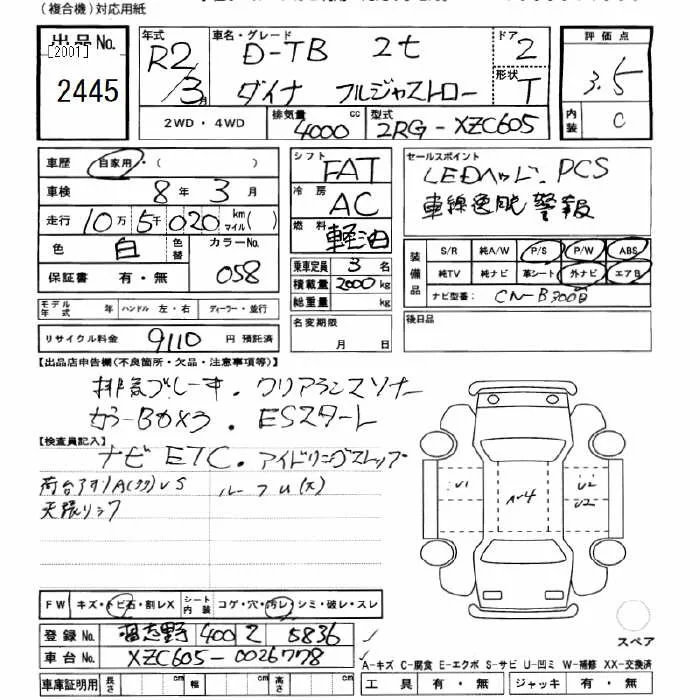 (複合機)対応用紙
出品No.
[2001]
2445
年式
R2/3月
車名・グレード
D-TB 2t
ダイナ フルジャストロー
ドア
2
形状
T
評価点
3.5
内装
C
2WD・4WD
排気量
4000cc
型式
2RG-XZC605
車歴 自家用・( )
車検 8年 3月
走行 10万 5千 020 km マイル( )
色 白 色替 カラーNo. 058
保証書 有・無
シフト FAT
冷房 AC
燃料 軽油
乗車定員 3名
積載量 2000kg
総重量 kg
セールスポイント
LEDヘッド、PCS
装備品
S/R 純A/W P/S P/W ABS
純TV 純ナビ 革シート 外ナビ エアB
ナビ型番: CN-B300B
モデル年式 年 ハンドル 左・右 ディーラー・並行
名変期限 月 日
後日品
リサイクル料金 9110 円 預託済
【出品店申告欄(不良箇所・欠品・注意事項等)】
排気ブレーキ. クリアランスソナー
カラーBカメラ. ESスタート
【検査員記入】
ナビ ETC. アイドリングストップ
U1
U2
U2
FW キズ・トビ石・割レX シート内装 コゲ・穴・汚レ・シミ・破レ・スレ
登録No. 習志野 400 Z 5836
車台No. XZC605-0026778
車庫証明用 長さ 幅 高さ
スペア
A-キズ C-腐食 E-エクボ S-サビ U-凹ミ W-補修 XX-交換済
工具 有・無 ジャッキ 有・無